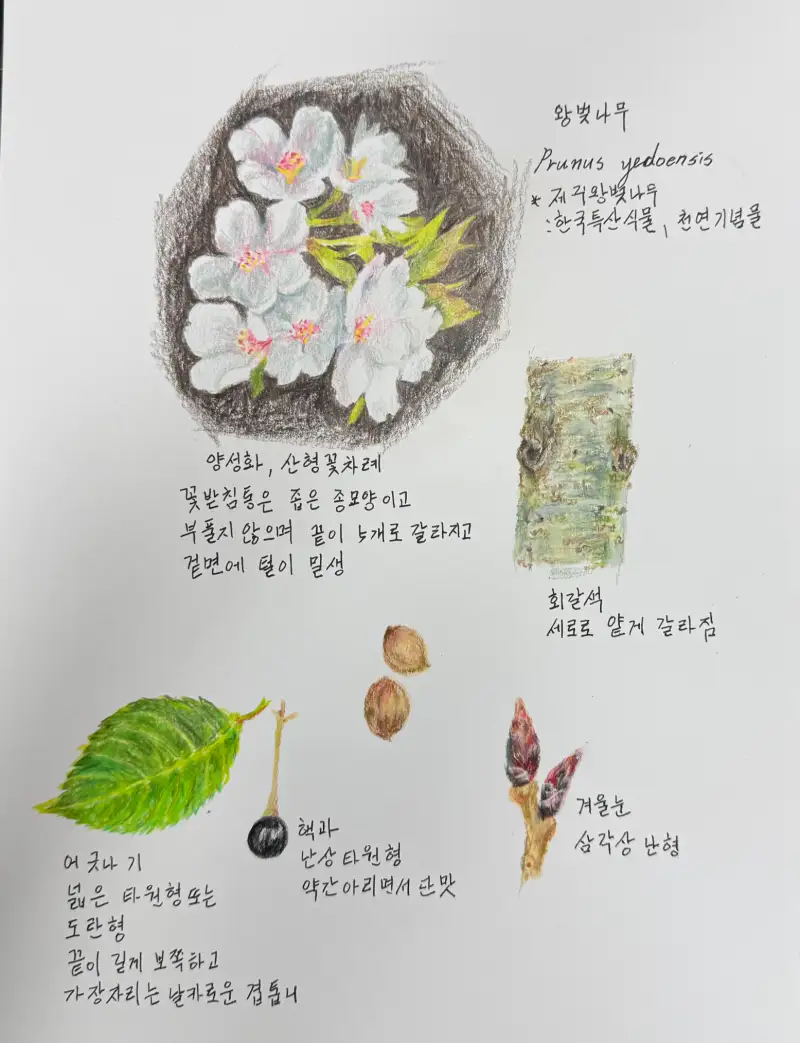 왕벚나무
Prunus yedoensis
* 제주왕벚나무
:한국특산식물, 천연기념물
양성화, 산형꽃차례
꽃받침통은 좁은 종모양이고
부풀지 않으며 끝이 5개로 갈라지고
겉면에 털이 밀생
회갈색
세로로 얕게 갈라짐
핵과
난상 타원형
약간아리면서 단맛
겨울눈
삼각상 난형
어긋나기
넓은 타원형또는
도란형
끝이 길게 뾰쪽하고
가장자리는 날카로운 겹톱니